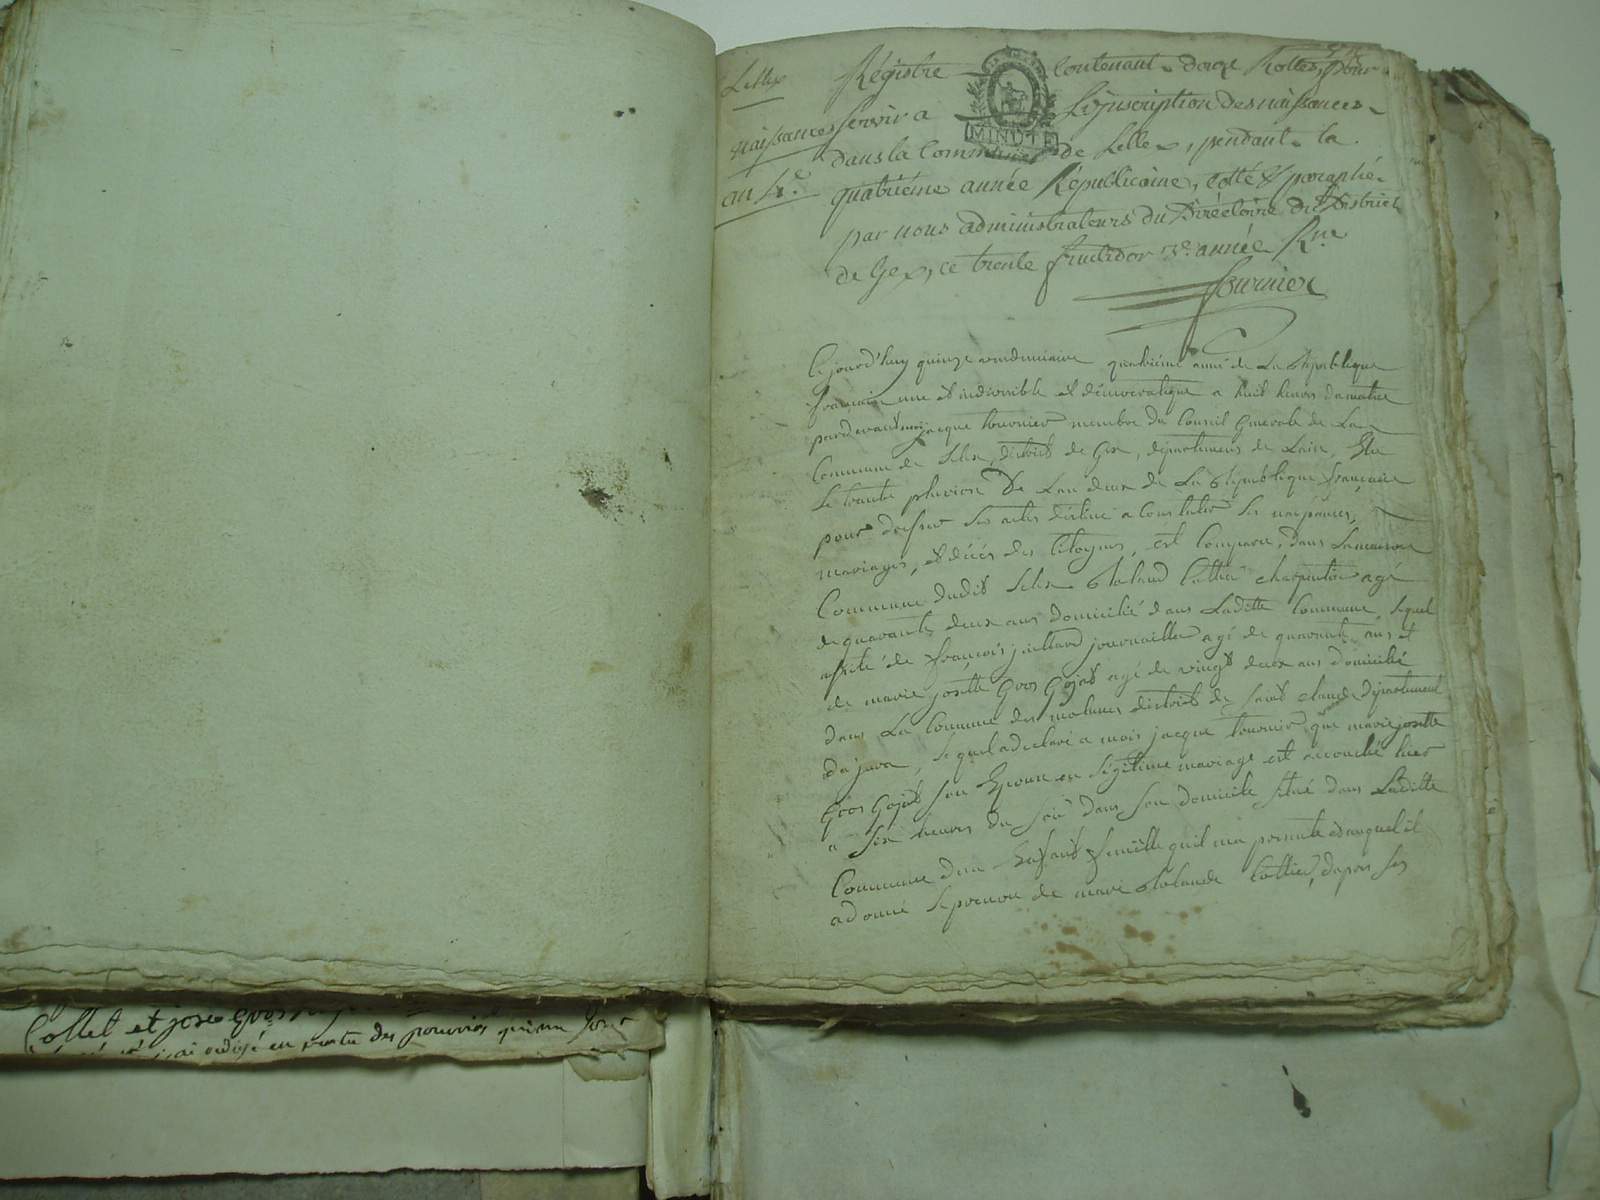 Lellex
naissances
an 4.e
Régistre contenant douze Rolles, pour
servir a L'inscription des naissances
MINUTE
dans la Commune de Lellex, pendant la
quatriéme année Républicaine, cotté & paraphé
par nous administrateurs du Directoire du District
de Gex, ce trente fructidor 3.e année Rne
fournier
Ce jourd'huy quinze vendemiaire quatriéme année de La Republique
francaise une et indivisible et démocratique a huit heures du matin
pardevant moi jacque tournier membre du Conseil General de La
Commune de Lelex, district de Gex, département de Lain, Elu
Le trante pluviose De Lan deux de La Republique francaise
pour dresser Les actes destiné a Constater Les naissances,
mariages, et décés des Citoyens, est Comparu, dans La maison
Commune dudit Lelex Roland Cottier charpentier agé
de quarante deux ans domicilié dans Laditte Commune, Lequel
assité de françois juillard journaillier agé de quarante ans et
de marie josette Gros Gojat agé de vingt deux ans domicilié
dans La Commune des molunes district de Saint claude département
du jura, Lequel a declaré a moi jacque tournier que marie josette
Gros Gojat son Epouse en Légitime mariage est accouché hier
a six heures du soir dans son domicile situé dans Laditte
Commune d'un Enfant femelle quil ma presenté et auquel il
a donné Le prenom de marie Rolande Cottier, dapres Les
Collet et josep Gros
ai redigé en vertu des pouvoirs qui me sont